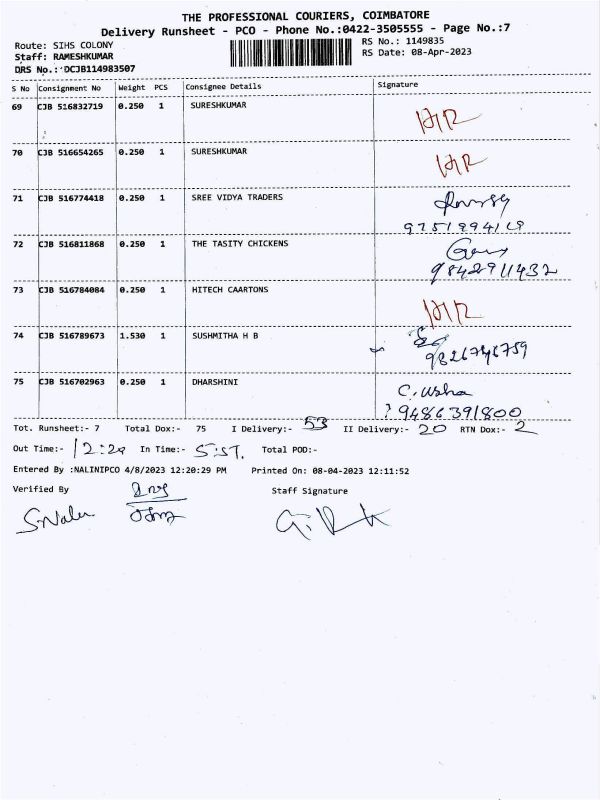 THE PROFESSIONAL COURIERS, COIMBATORE
Delivery Runsheet - PCO - Phone No.:0422-3505555 - Page No.:7
Route: SIHS COLONY
RS No.: 1149835
Staff: RAMESHKUMAR
RS Date: 08-Apr-2023
DRS No.: DCJB114983507
S No Consignment No Weight PCS Consignee Details Signature
69 CJB 516832719 0.250 1 SURESHKUMAR
70 CJB 516654265 0.250 1 SURESHKUMAR
71 CJB 516774418 0.250 1 SREE VIDYA TRADERS
72 CJB 516811868 0.250 1 THE TASITY CHICKENS
9842911432
73 CJB 516784084 0.250 1 HITECH CAARTONS
74 CJB 516789673 1.530 1 SUSHMITHA H B
75 CJB 516702963 0.250 1 DHARSHINI
C. Usha
9486391800
Tot. Runsheet:- 7 Total Dox:- 75 I Delivery:- 53 II Delivery:- 20 RTN Dox:- 2
Out Time:- 12:20 In Time:- Total POD:-
Entered By :NALINIPCO 4/8/2023 12:20:29 PM Printed On: 08-04-2023 12:11:52
Verified By Staff Signature